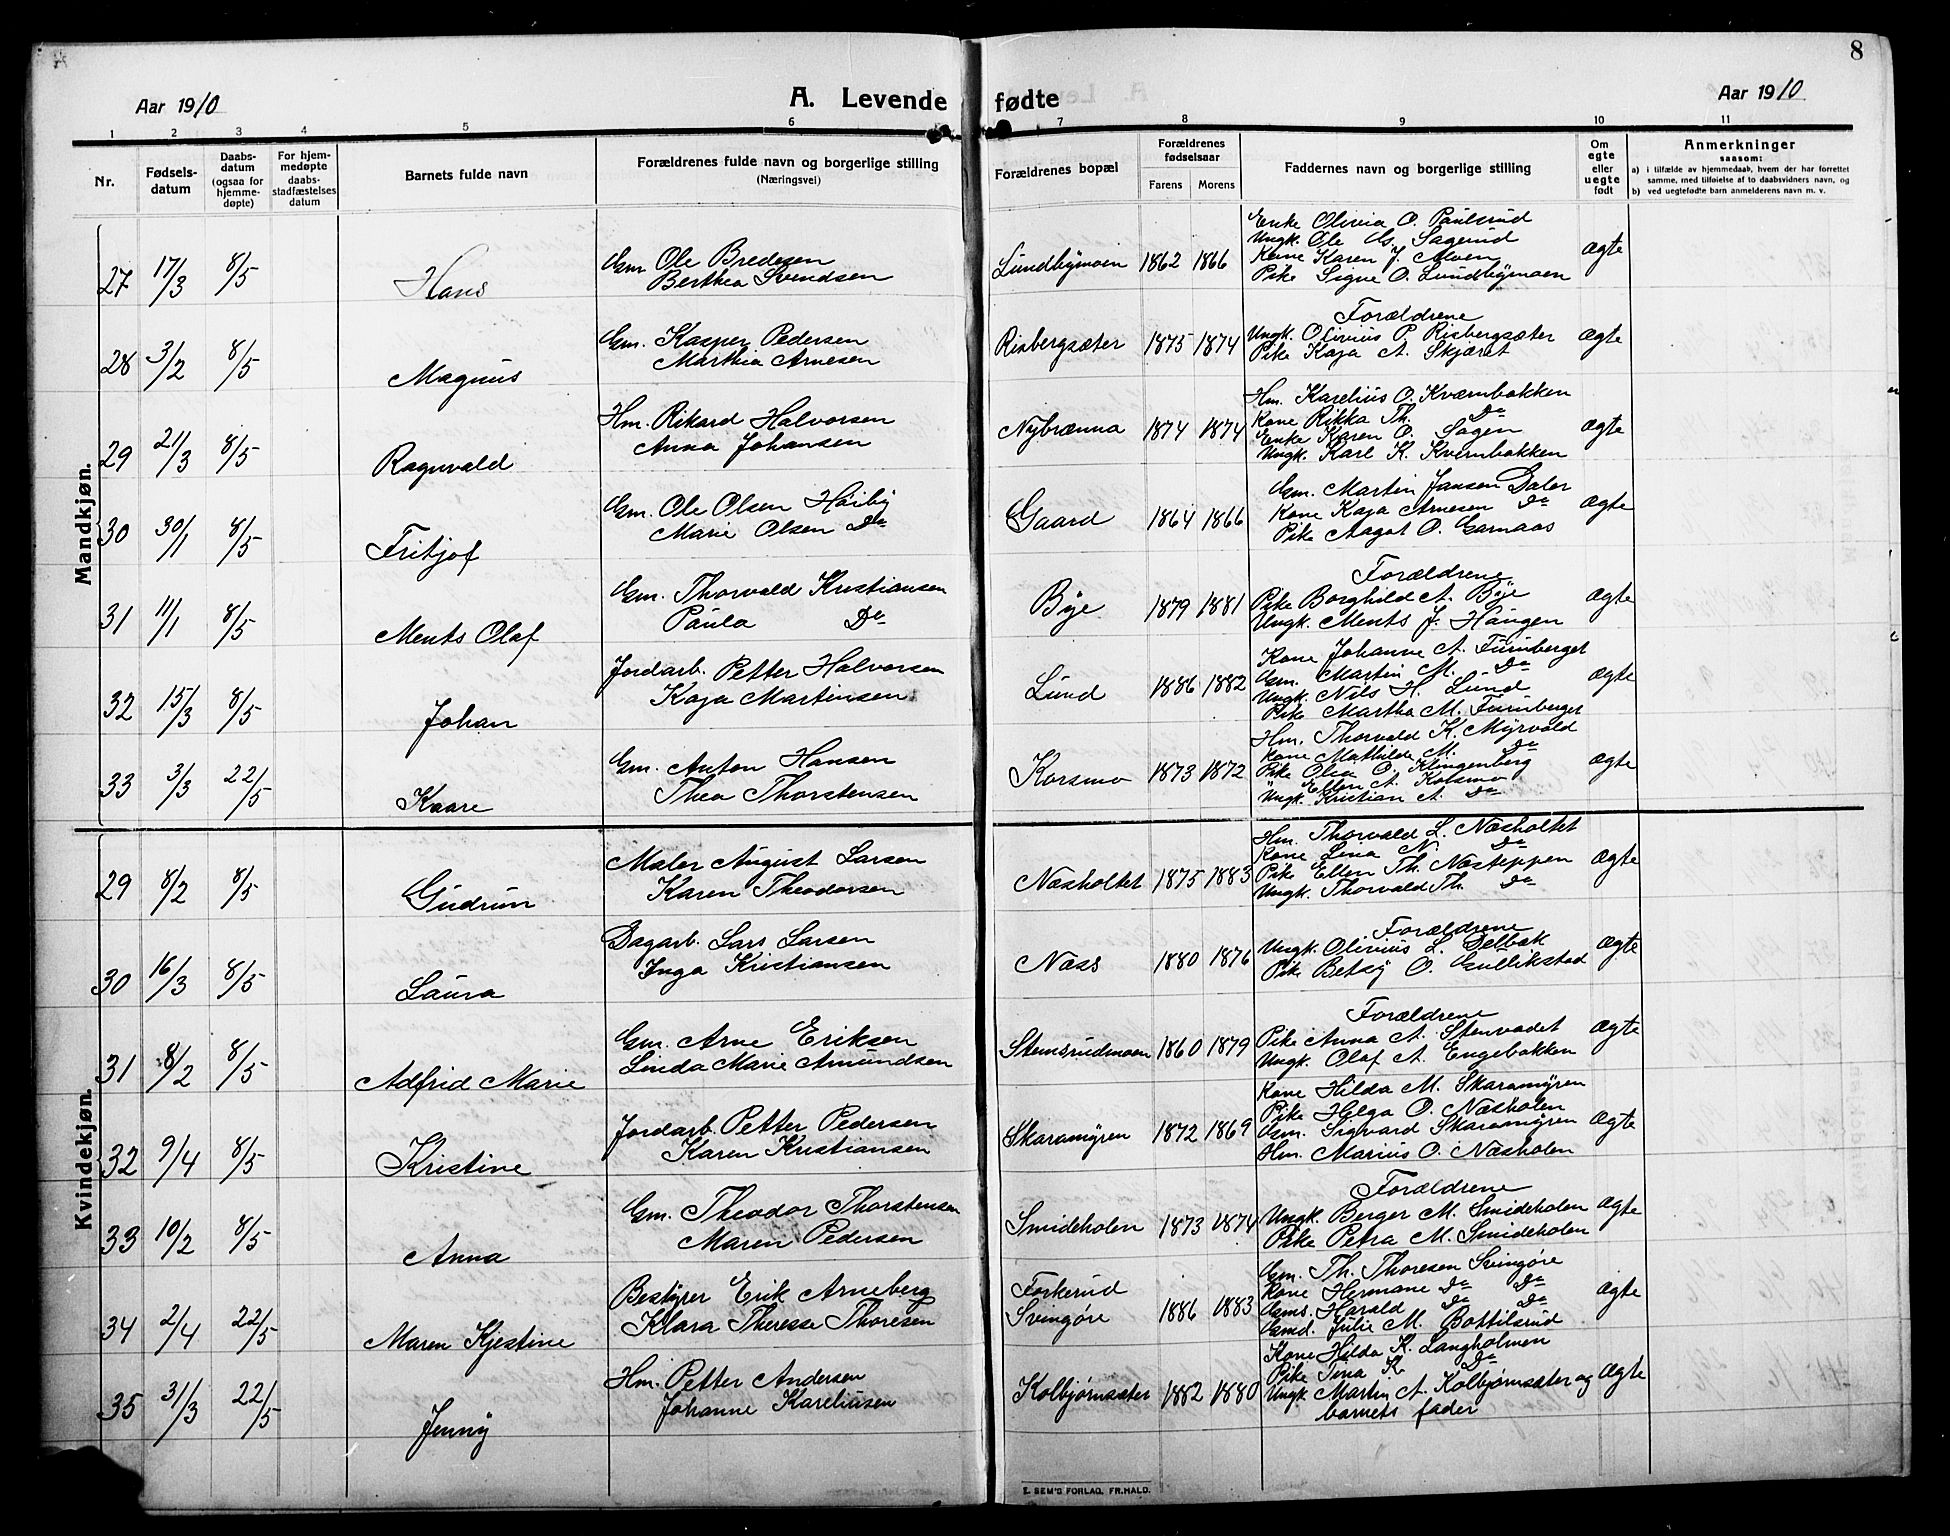 8
Aar 1910
A. Levende fødte
Aar 1910
1 2 3 4 5 6 7 8 9 10 11
Nr.
Fødsels-
datum
Daabs-
datum
(ogsaa for
hjemme-
døpte)
For hjem-
medøpte
daabs-
stadfæstelses
datum
Barnets fulde navn
Forældrenes fulde navn og borgerlige stilling
(Næringsvei)
Forældrenes bopæl
Forældrenes
fødselsaar
Farens Morens
Faddernes navn og borgerlige stilling
Om
egte
eller
uegte
født
Anmerkninger
saasom:
a) i tilfælde av hjemmedaab, hvem der har forrettet
samme, med tilføielse af to daabsvidners navn, og
b) ved uegtefødte barn anmelderens navn m. v.
Mandkjøn.
27 17/3 8/5 Hans
Gm. Ole Bredesen
Berthea Svendsen
Lundbymoen 1862 1866
Enke Olivia O. Paulsrud
Ungk. Ole Gs. Sagerud
Kone Karen J. Alven
Pike Signe O. Lundbymoen
Ægte
28 3/2 8/5 Magnus
Gm. Kasper Pedersen
Marthia Arnesen
Risbergsæter 1875 1874
Forældrene
Ungk. Olivius P. Risbergsæter
Pike Kaja A. Skjæret
Ægte
29 21/3 8/5 Ragnvald
Hm. Rikard Halvorsen
Anna Johansen
Nybrænna 1874 1874
Hm. Karelius O. Kværnbakken
Kone Rikka Th. Do
Enke Karen O. Sagen
Ungk. Karl K. Kvernbakken
Ægte
30 30/1 8/5 Fritjof
Gm. Ole Olsen Høiby
Marie Olsen Do
Gaard 1864 1866
Gm. Martin Jansen Daler
Kone Kaja Arnesen Do
Pike Aagot O. Garnaas
Ægte
31 11/1 8/5 Ments Olaf
Gm. Thorvald Kristiansen
Paula Do
Bye 1879 1881
Forældrene
Pike Borghild A. Bye
Ungk. Ments J. Haugen
Ægte
32 15/3 8/5 Johan
Jordarb. Petter Halvorsen
Kaja Martinsen
Lund 1886 1882
Kone Johanne A. Furuberget
Gm. Martin M. Do
Ungk. Nils H. Lund
Pike Martha M. Furuberget
Ægte
33 3/3 22/5 Kaare
Gm. Anton Hansen
Thea Thorstensen
Korsmo 1873 1872
Hm. Thorvald K. Myrvold
Kone Mathilde M. Do
Pike Olea O. Klingenberg
" Ellen A. Korsmo
Ungk. Kristian A. Do
Ægte
Kvindekjøn.
29 8/2 8/5 Gudrun
Maler August Larsen
Karen Theodorsen
Næsholtet 1875 1883
Hm. Thorvald L. Næsholtet
Kone Lina N. Do
Pike Ellen Th. Næsteppen
Ungk. Thorvald Th. Do
Ægte
30 16/3 8/5 Laura
Dagarb. Lars Larsen
Inga Kristiansen
Næss 1880 1876
Forældrene
Ungk. Olivius L. Delbæk
Pik Betsy O. Gullikstad
Ægte
31 8/2 8/5 Adfrid Marie
Gm. Arne Eriksen
Linda Marie Amundsen
Stemsrudmoen 1860 1879
Forældrene
Pike Anna A. Stenvadet
Ungk. Olaf A. Engebakken
Ægte
32 9/4 8/5 Kristine
Jordarb. Petter Pedersen
Karen Kristiansen
Skaramyren 1872 1869
Kone Hilda M. Skaramyren
Pike Helga O. Næsholen
Gm. Sigvard Skaramyren
Hm. Marius O. Næsholen
Ægte
33 10/2 8/5 Anna
Gm. Theodor Thorstensen
Maren Pedersen
Smideholen 1873 1874
Forældrene
Ungk. Berger M. Smideholen
Pike Petra M. Smideholen
Ægte
34 2/4 22/5 Maren Kjestine
Bestyrer Erik Arneberg
Klara Therese Thoresen
Forkerud
Svingøre 1886 1883
Gm. Th. Thoresen Svingøre
Kone Hermane Do Do
Gms. Harald Do Do
Gmd. Julie M. Bottilsrud
Ægte
35 31/3 22/5 Jenny
Hm. Petter Andersen
Johanne Kareliusen
Kolbjørnsæter 1882 1880
Kone Hilda K. Langholmen
Pike Tina K. Do
Ungk. Martin A. Kolbjørnsæter og
barnets fader
Ægte
E. SEM'S FORLAG, FR.HALD.